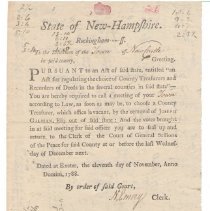 State of New-Hampshire.
Rockingham ss.
To the Selectmen of the Town of Newfields
in said county, Greeting.
PURSUANT to an Act of said state, entitled "an
Act for regulating the choice of County Treasurers and
Recorders of Deeds in the several counties in said state"
You are hereby required to call a meeting of your Town
according to Law, as soon as may be, to choose a County
Treasurer, which office is vacant, by the removal of Joseph
Gilman, Esq. out of said state: And the votes brought
in at said meeting for said officer you are to seal up and
return to the Clerk of the Court of General Sessions
of the Peace for said county at or before the last Wednes-
day of December next.
Dated at Exeter, the eleventh day of November, Anno
Domini, 1788.
By order of said Court,
Clerk.